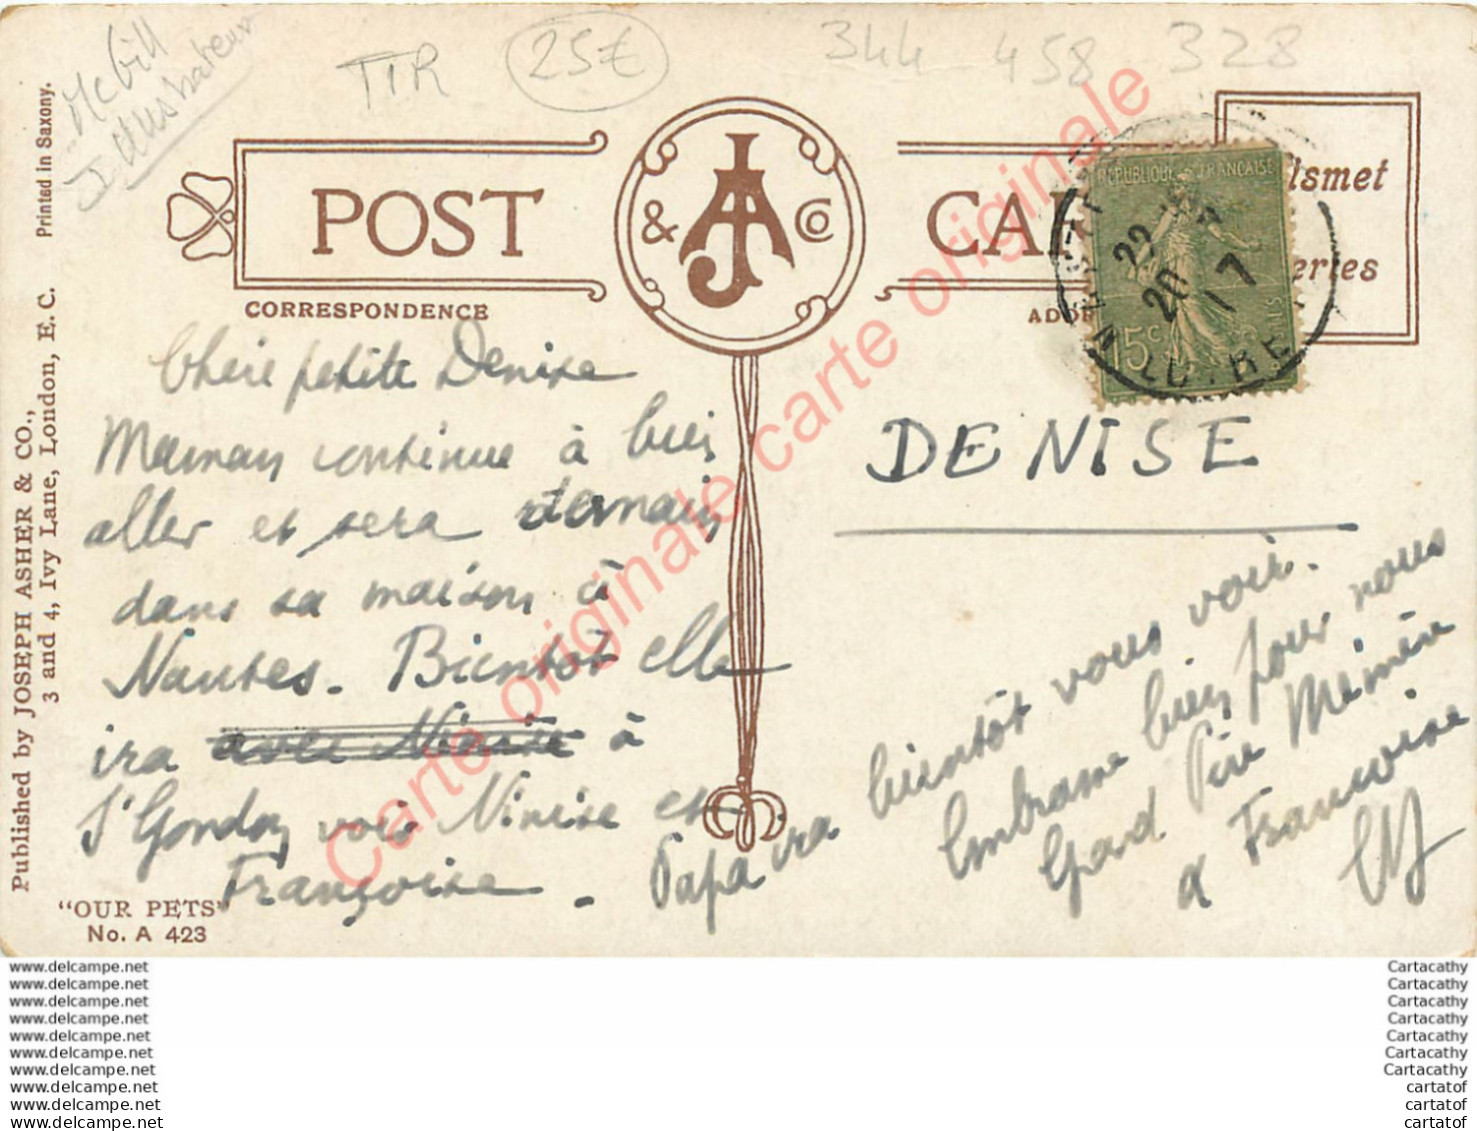 McGill
Illustrateur
TIR
25€
344 458 328
Printed in Saxony.
POST
& JA Co
CAR
ismet
eries
CORRESPONDENCE
REPUBLIQUE FRANÇAISE
15c
22
20 17
Published by JOSEPH ASHER & CO.,
3 and 4, Ivy Lane, London, E. C.
DENISE
Chère petite Denise
Maman continue à bien
aller et sera demain
dans sa maison à
Nantes. Bientôt elle
ira avec Ninise à
St Gondon voir Ninise et
Françoise. Papa ira
bientôt vous voir.
Embrasse bien pour nous
Grand Père Mémère
& Françoise
"OUR PETS"
No. A 423
Carte originale carte originale
www.delcampe.net
www.delcampe.net
www.delcampe.net
www.delcampe.net
www.delcampe.net
www.delcampe.net
www.delcampe.net
www.delcampe.net
www.delcampe.net
www.delcampe.net
Cartacathy
Cartacathy
Cartacathy
Cartacathy
Cartacathy
Cartacathy
Cartacathy
cartatof
cartatof
cartatof